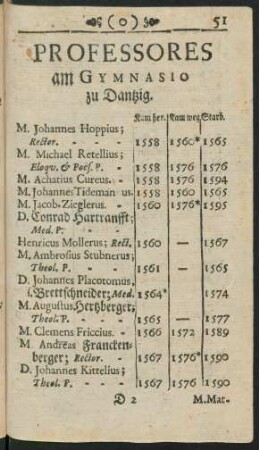 (o) 51
PROFESSORES
am GYMNASIO
zu Dantzig.
Kam her. Kam weg. Starb.
M. Johannes Hoppius;
Rector. - - - 1558 1560* 1565
M. Michael Retellius;
Eloqv. & Poës. P. - 1558 1576 1576
M. Achatius Cureus. - 1558 1576 1594
M. Johannes Tideman us. 1558 1560 1565
M. Jacob. Zieglerus. - 1560 1576* 1595
D. Conrad Hartranfft;
Med. P. - -
Henricus Mollerus; Rect. 1560 — 1567
M. Ambrosius Stubnerus;
Theol. P. - - 1561 — 1565
D. Johannes Placotomus,
s. Brettschneider; Med. 1564* 1574
M. Augustus Hertzberger,
Theol. P. - - - 1565 — 1577
M. Clemens Friccius. - 1566 1572 1589
M. Andreas Francken-
berger; Rector. - - 1567 1576* 1590
D. Johannes Kittelius;
Theol. P. - - - 1567 1576 1590
D 2 M. Mat-